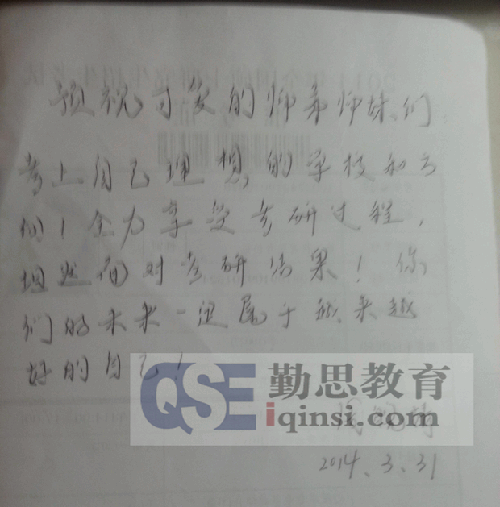 预祝可爱的师弟师妹们
考上自己理想的学校和云
们！全力享受考研过程，
坦然面对考研结果！你
们的未来一定属于越来越
好的自己！
QSE 勤思教育
iqinsi.com
2014.3.31